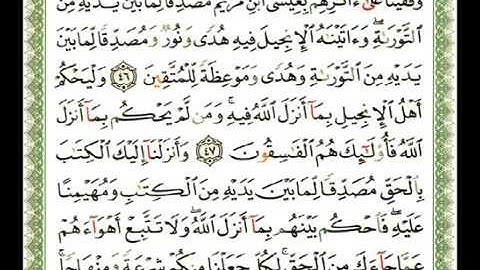 وَقَفَّيْنَا عَلَىٰ ءَاثَٰرِهِم بِعِيسَى ٱبْنِ مَرْيَمَ مُصَدِّقًا لِّمَا بَيْنَ يَدَيْهِ مِنَ
ٱلتَّوْرَىٰةِ ۖ وَءَاتَيْنَٰهُ ٱلْإِنجِيلَ فِيهِ هُدًى وَنُورٌ وَمُصَدِّقًا لِّمَا بَيْنَ
يَدَيْهِ مِنَ ٱلتَّوْرَىٰةِ وَهُدًى وَمَوْعِظَةً لِّلْمُتَّقِينَ ٤٦ وَلْيَحْكُمْ
أَهْلُ ٱلْإِنجِيلِ بِمَآ أَنزَلَ ٱللَّهُ فِيهِ ۚ وَمَن لَّمْ يَحْكُم بِمَآ أَنزَلَ
ٱللَّهُ فَأُو۟لَٰٓئِكَ هُمُ ٱلْفَٰسِقُونَ ٤٧ وَأَنزَلْنَآ إِلَيْكَ ٱلْكِتَٰبَ
بِٱلْحَقِّ مُصَدِّقًا لِّمَا بَيْنَ يَدَيْهِ مِنَ ٱلْكِتَٰبِ وَمُهَيْمِنًا
عَلَيْهِ ۖ فَٱحْكُم بَيْنَهُم بِمَآ أَنزَلَ ٱللَّهُ ۖ وَلَا تَتَّبِعْ أَهْوَآءَهُمْ
عَمَّا جَآءَكَ مِنَ ٱلْحَقِّ ۚ لِكُلٍّ جَعَلْنَا مِنكُمْ شِرْعَةً وَمِنْهَاجًا ۚ